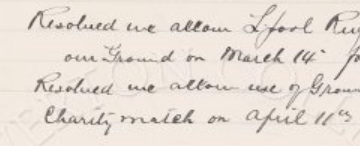 Resolved we allow L'pool Ru
our Ground on March 14th fo
Resolved we allow use of Groun
Charity match on April 11th